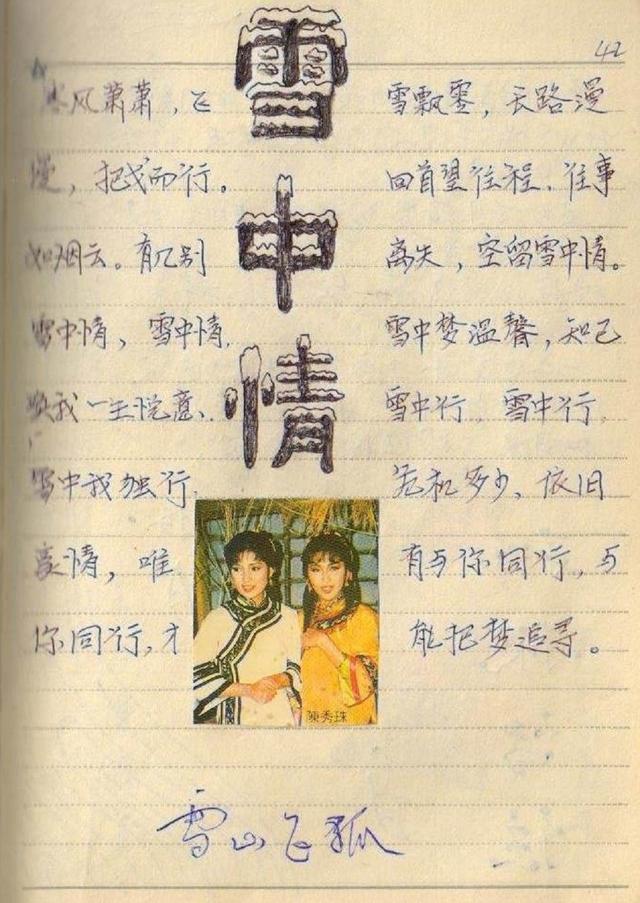 42
雪中情
寒风萧萧，飞雪飘零，长路漫
漫，把戈而行。回首望往程，往事
如烟云。有几别离失，空留雪中情。
雪中情，雪中情，雪中梦温馨，知己
我一生悦意，雪中行，雪中行，
雪中我独行，危机多少，依旧
豪情，唯有与你同行，与
你同行，才能把梦追寻。
陳秀珠
雪山飞狐